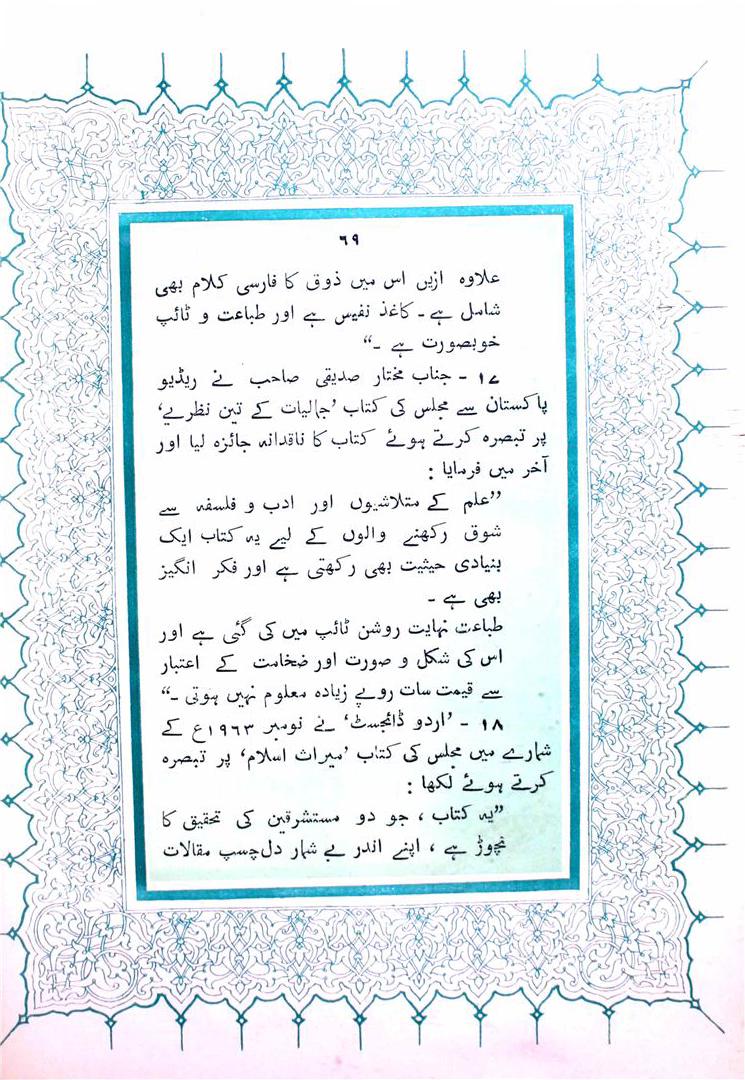 ۶۹
علاوہ ازیں اس میں ذوق کا فارسی کلام بھی
شامل ہے ۔ کاغذ نفیس ہے اور طباعت و ٹائپ
خوبصورت ہے ۔“
۱۷ ۔ جناب مختار صدیقی صاحب نے ریڈیو
پاکستان سے مجلس کی کتاب ’جمالیات کے تین نظریے‘
پر تبصرہ کرتے ہوئے کتاب کا ناقدانہ جائزہ لیا اور
آخر میں فرمایا :
”علم کے متلاشیوں اور ادب و فلسفہ سے
شوق رکھنے والوں کے لیے یہ کتاب ایک
بنیادی حیثیت بھی رکھتی ہے اور فکر انگیز
بھی ہے ۔
طباعت نہایت روشن ٹائپ میں کی گئی ہے اور
اس کی شکل و صورت اور ضخامت کے اعتبار
سے قیمت سات روپے زیادہ معلوم نہیں ہوتی ۔“
۱۸ ۔ ’اردو ڈائجسٹ‘ نے نومبر ۱۹۶۳ع کے
شمارے میں مجلس کی کتاب ’میراث اسلام‘ پر تبصرہ
کرتے ہوئے لکھا :
”یہ کتاب ، جو دو مستشرقین کی تحقیق کا
نچوڑ ہے ، اپنے اندر بے شمار دلچسپ مقالات